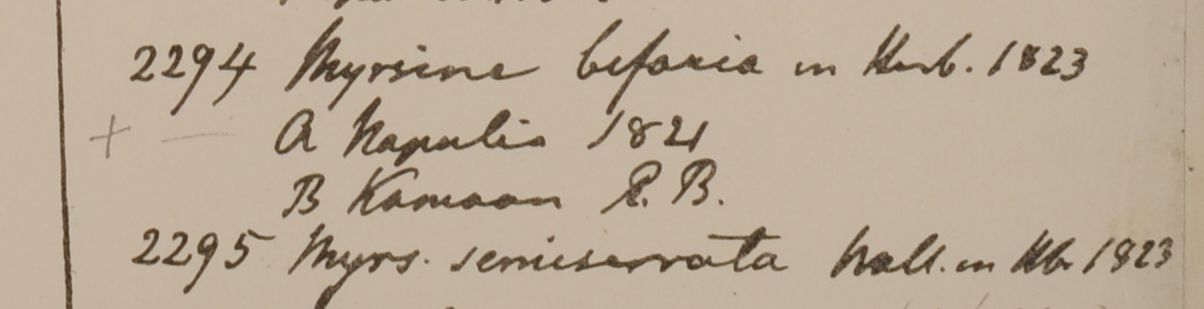 2294 Myrsine bifaria in Herb. 1823
+ — A Napalia 1821
B Kamaon R. B.
2295 Myrs. semiserrata Wall. in Hb. 1823